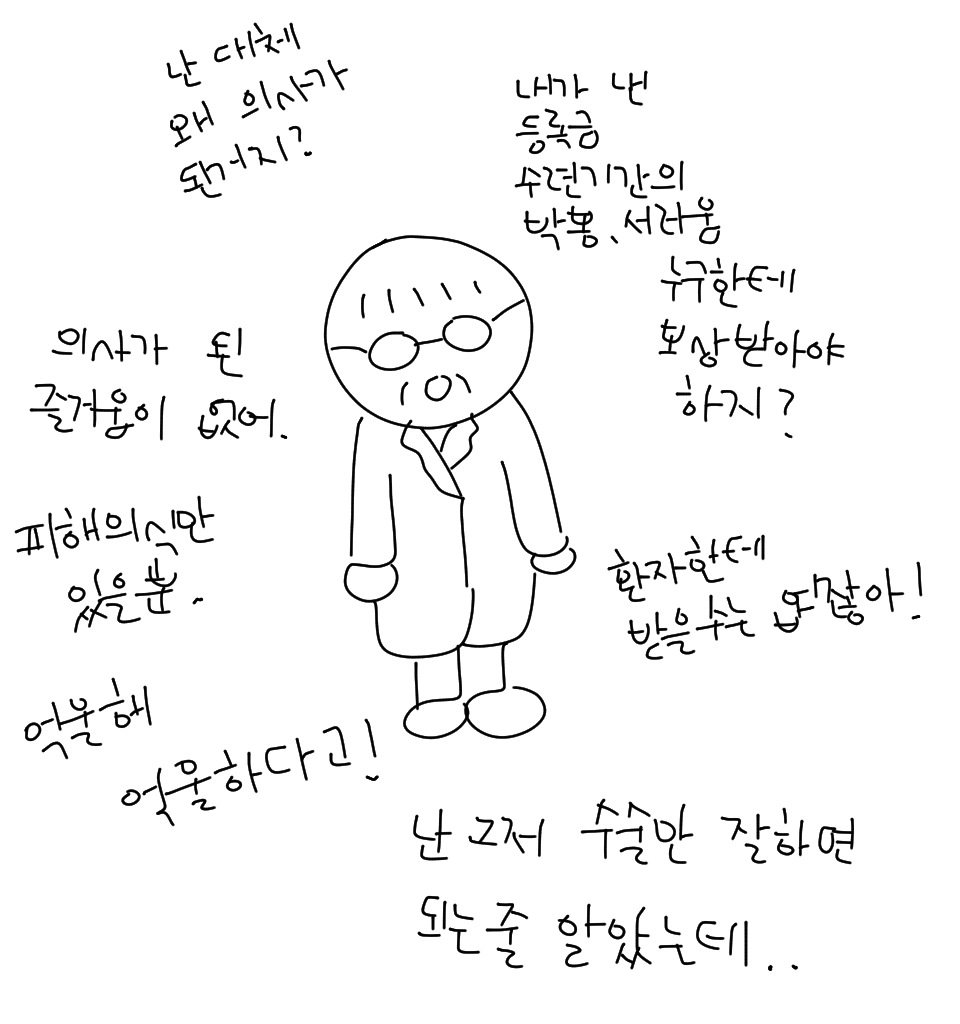 난 대체
왜 의사가
된거지?
내가 낸
등록금
수련기간의
박봉, 서러움
누구한테
보상받아야
하지?
의사가 된
즐거움이 없어.
피해의식만
있을뿐.
환자한테
받을수는 없잖아!
억울해
억울하다고!
난 그저 수술만 잘하면
되는줄 알았는데..